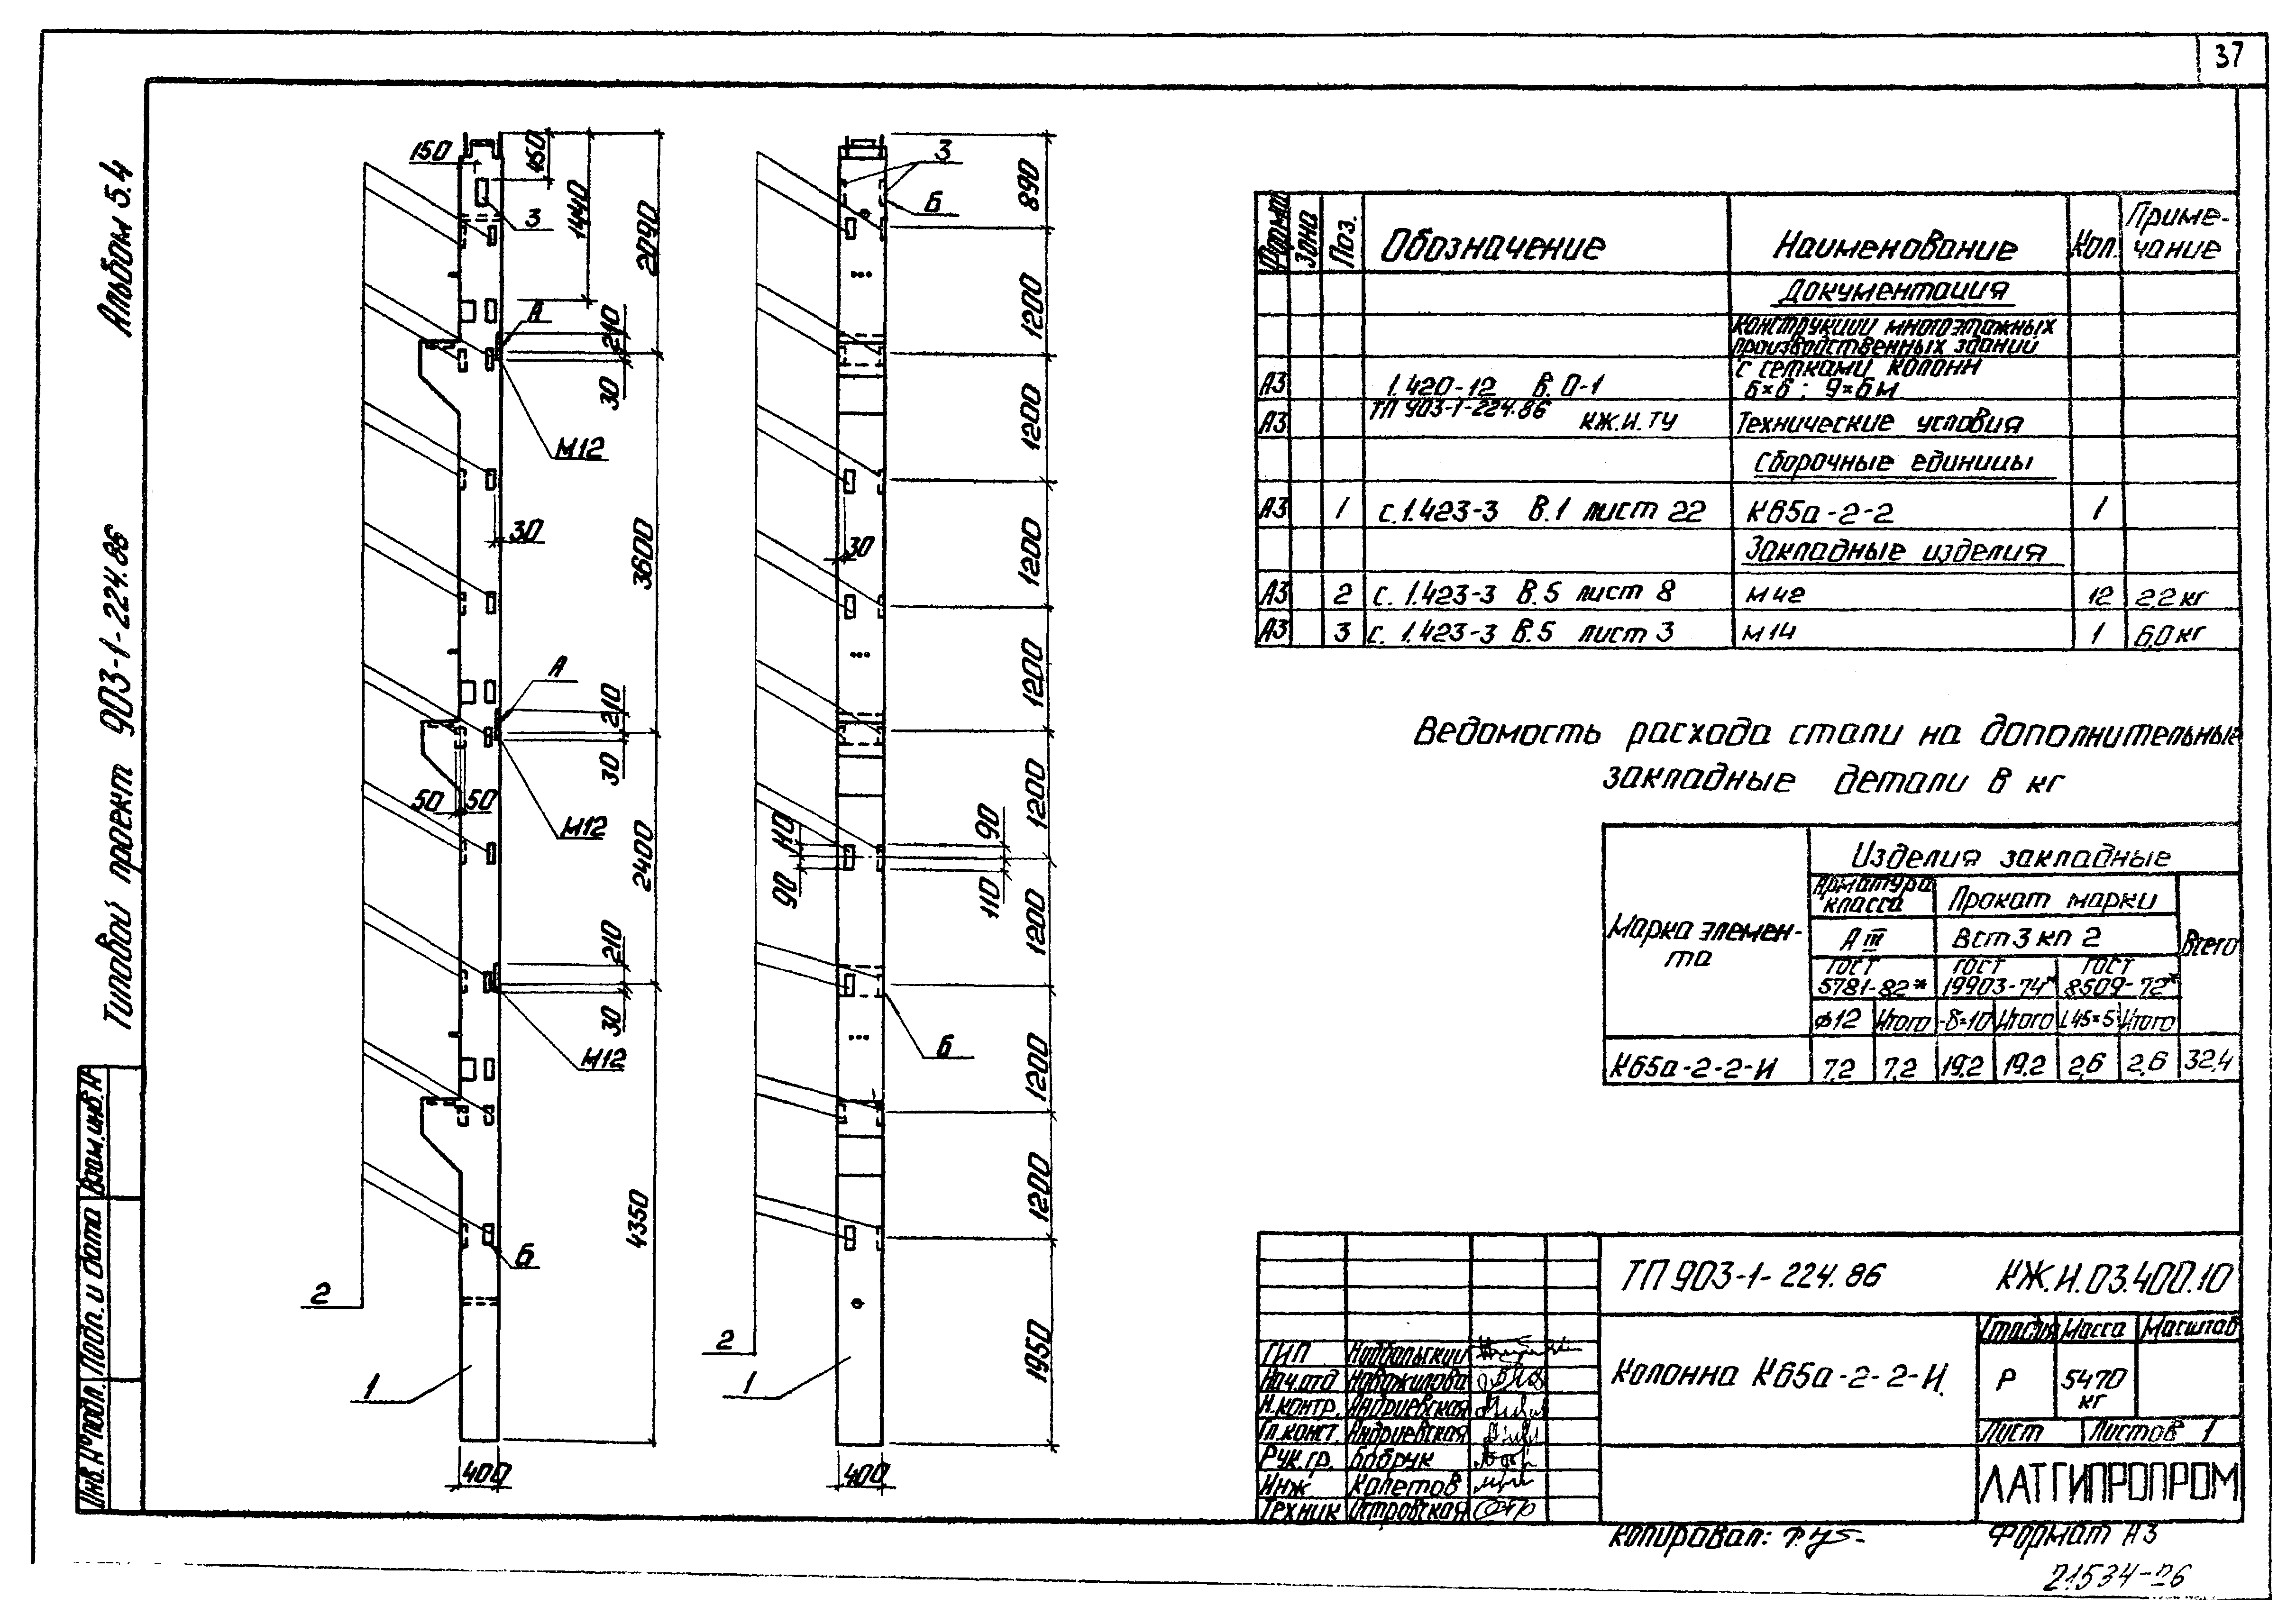 37
Альбом 5.4
Типовой проект 903-1-224.86
Взам.инв.№
Подп. и дата
Инв.№подл.
150
450
3
1440
2090
А
210
30
М12
30
3600
А
210
30
М12
50 50
2400
210
30
М12
4350
Б
2
1
400
3
Б
890
1200
1200
30
1200
1200
1200
110
90
90
110
1200
Б
1200
1200
1950
2
1
400
Формат Зона Поз. Обозначение Наименование Кол. Приме-
чание
Документация
Конструкции многоэтажных
производственных зданий
с сетками колонн
А3 1.420-12 В. 0-1 6×6; 9×6м
А3 ТП 903-1-224.86 КЖ.И.ТУ Технические условия
Сборочные единицы
А3 1 с.1.423-3 В.1 лист 22 К65а-2-2 1
Закладные изделия
А3 2 с. 1.423-3 В.5 лист 8 М42 12 2,2кг
А3 3 с. 1.423-3 В.5 лист 3 М14 1 6,0кг
Ведомость расхода стали на дополнительные
закладные детали в кг
Марка элемен-
та
Изделия закладные
Арматура
класса
Прокат марки
А III
Вст3кп2
Всего
ГОСТ
5781-82*
ГОСТ
19903-74*
ГОСТ
8509-72*
ф12 Итого -δ=10 Итого L45×5 Итого
К65а-2-2-И 7,2 7,2 19,2 19,2 2,6 2,6 32,4
ТП 903-1-224.86 КЖ.И.03.400.10
Колонна К65а-2-2-И.
Стадия Масса Масштаб
Р 5470
кг
Лист Листов 1
ЛАТГИПРОПРОМ
ГИП
Нач.отд
Н.контр. Андриевская
Гл.конст. Андриевская
Рук.гр. Бобрук
Инж Колетов
Техник Островская
Копировал:
Формат А3
21534-06